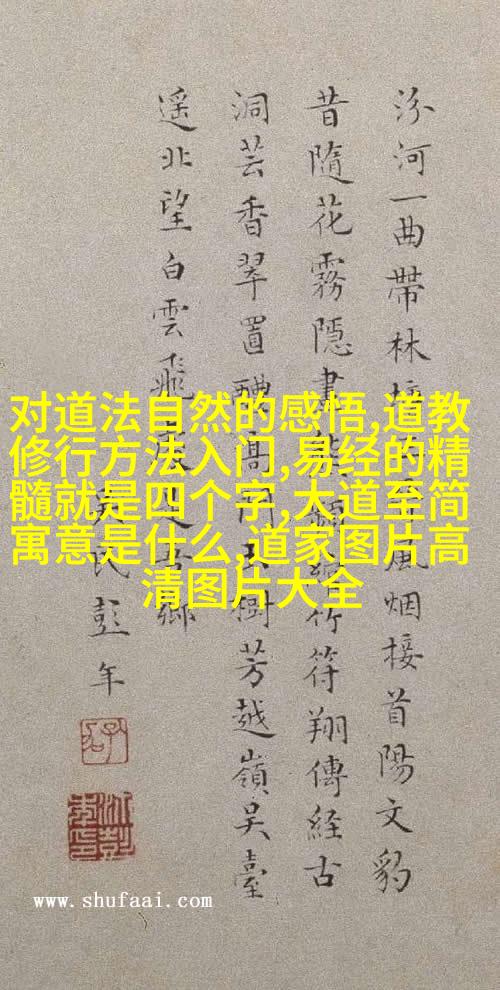 汾河一曲帶林風烟接首陽文豹
昔隨花霧隱書竹符翔傳經古
洞芸香翠置高樹芳越嶺吴臺
遥北望白雲飛鄉
氏彭年
对道法自然的感悟,道教
修行方法入门,易经的精
髓就是四个字,大道至简
寓意是什么,道家图片高
清图片大全
www.shufaai.com